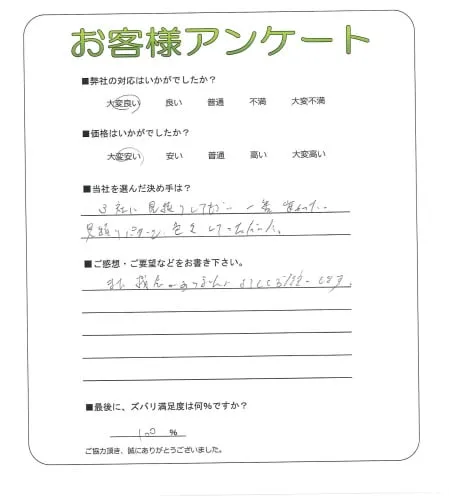 お客様アンケート
■弊社の対応はいかがでしたか？
大変良い 良い 普通 不満 大変不満
■価格はいかがでしたか？
大変安い 安い 普通 高い 大変高い
■当社を選んだ決め手は？
3社に見積りしてもらい一番
見積りパターン
■ご感想・ご要望などをお書き下さい。
また
■最後に、ズバリ満足度は何%ですか？
100 %
ご協力頂き、誠にありがとうございました。